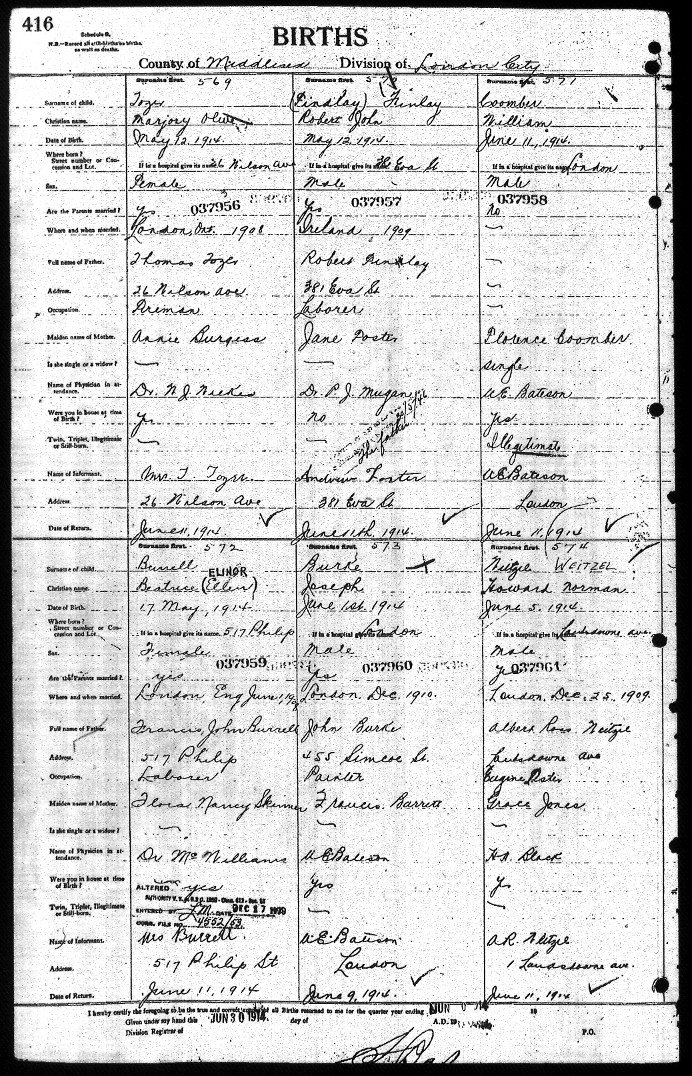 416
Schedule B.
N.B.—Record all still-births as births, as well as deaths.
BIRTHS
County of Middlesex Division of London City
Surname first. 569 Surname first. Surname first. 571
Surname of child. Tozer (Findlay) Finlay Coomber
Christian name. Marjory Olive Robert John William
Date of Birth. May 12, 1914. May 12, 1914. June 11, 1914.
Where born?
Street number or Concession and Lot. If in a hospital give its name. 26 Nilson Ave If in a hospital give its name. 381 Eva St If in a hospital give its name. London
Sex. Female Male Male
037956 037957 037958
Are the Parents married? yes yes no
Where and when married. London, Ont. 1908 Ireland 1909 —
Full name of Father. Thomas Tozer Robert Findlay —
Address. 26 Nilson ave 381 Eva St —
Occupation. Fireman Laborer —
Maiden name of Mother. Annie Burgess Jane Foster Florence Coomber
Is she single or a widow? — — single
Name of Physician in attendance. Dr. N. J. Dr. P. J. Mugan W.E. Bateson
Were you in house at time of Birth? yes no yes
Twin, Triplet, Illegitimate or Still-born. — — Illegitimate
the father
Name of Informant. Mrs. T. Tozer Andrew Foster W.E. Bateson
Address. 26 Nilson Ave 381 Eva St London
Date of Return. June 11, 1914 June 11th, 1914. June 11, 1914
Surname first. 572 Surname first. 573 Surname first. 574
Surname of child. Burrell Burke Neitzel WEITZEL
ELINOR
Christian name. Beatrice (Ellen) Joseph Howard Norman
Date of Birth. 17 May, 1914 June 1st 1914 June 5, 1914
Where born?
Street number or Concession and Lot. If in a hospital give its name. 517 Philip If in a hospital give its name. London If in a hospital give its name. Lansdowne ave.
Sex. Female Male Male
037959 037960 037961
Are the Parents married? yes yes y
Where and when married. London, Eng June, London Dec 1910. London, Dec. 25, 1909
Full name of Father. Francis John Burrell John Burke Albert Ross
Address. 517 Philip 455 Simcoe St. Lansdowne ave
Occupation. Laborer Painter
Maiden name of Mother. Nancy Skinner Francis Barrett Grace Jones
Is she single or a widow? — — —
Name of Physician in attendance. Dr McWilliams W.E. Bateson Black
Were you in house at time of Birth? yes yes y
ALTERED
Twin, Triplet, Illegitimate or Still-born. — —
ENTERED BY L.M. DATE DEC 17 1939
CORR. FILE NO. 4552/53
Name of Informant. Mrs Burrell. W.E. Bateson A.R.
Address. 517 Philip St London 1 Landsdowne ave.
Date of Return. June 11, 1914 June 9, 1914. June 11, 1914
I hereby certify the foregoing to be the true and correct of all Births returned to me for the quarter year ending JUN 19
Given under my hand this JUN 30 1914 day of A.D. 19
Division Registrar of P.O.